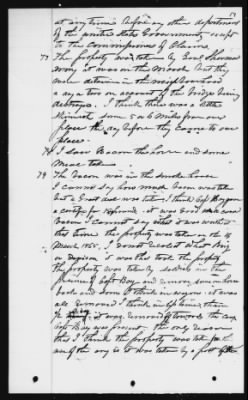 at any time before any other department
of the United States Government except
to the Commissioners of Claims.
73 The property was taken by Genl Sherman
army it was on the march. but they
were detained in the neighborhood
a day or two on account of the bridge being
destroyed. I think there was a little
skirmish some 5 or 6 miles from our
place the day before they came to our
place.
74 I saw Bacon the horse and some
Meal taken
79 The bacon was in the smoke house
I cannot say how much bacon was taken
but a great deal was taken. I think
a it was good
bacon I cannot say what it was worth at
this time the property was taken on the
March 1865. I do not recollect what Brig
or Division it was that took the property
The property was taken by soldiers in the
presence of Capt Day and some on horse
back and some I think in wagons. it was
all removed I think in
it was removed towards the camp
Capt Day was present. the only reason
this I think the property was taken for the
use of the army is it was taken by a part of the